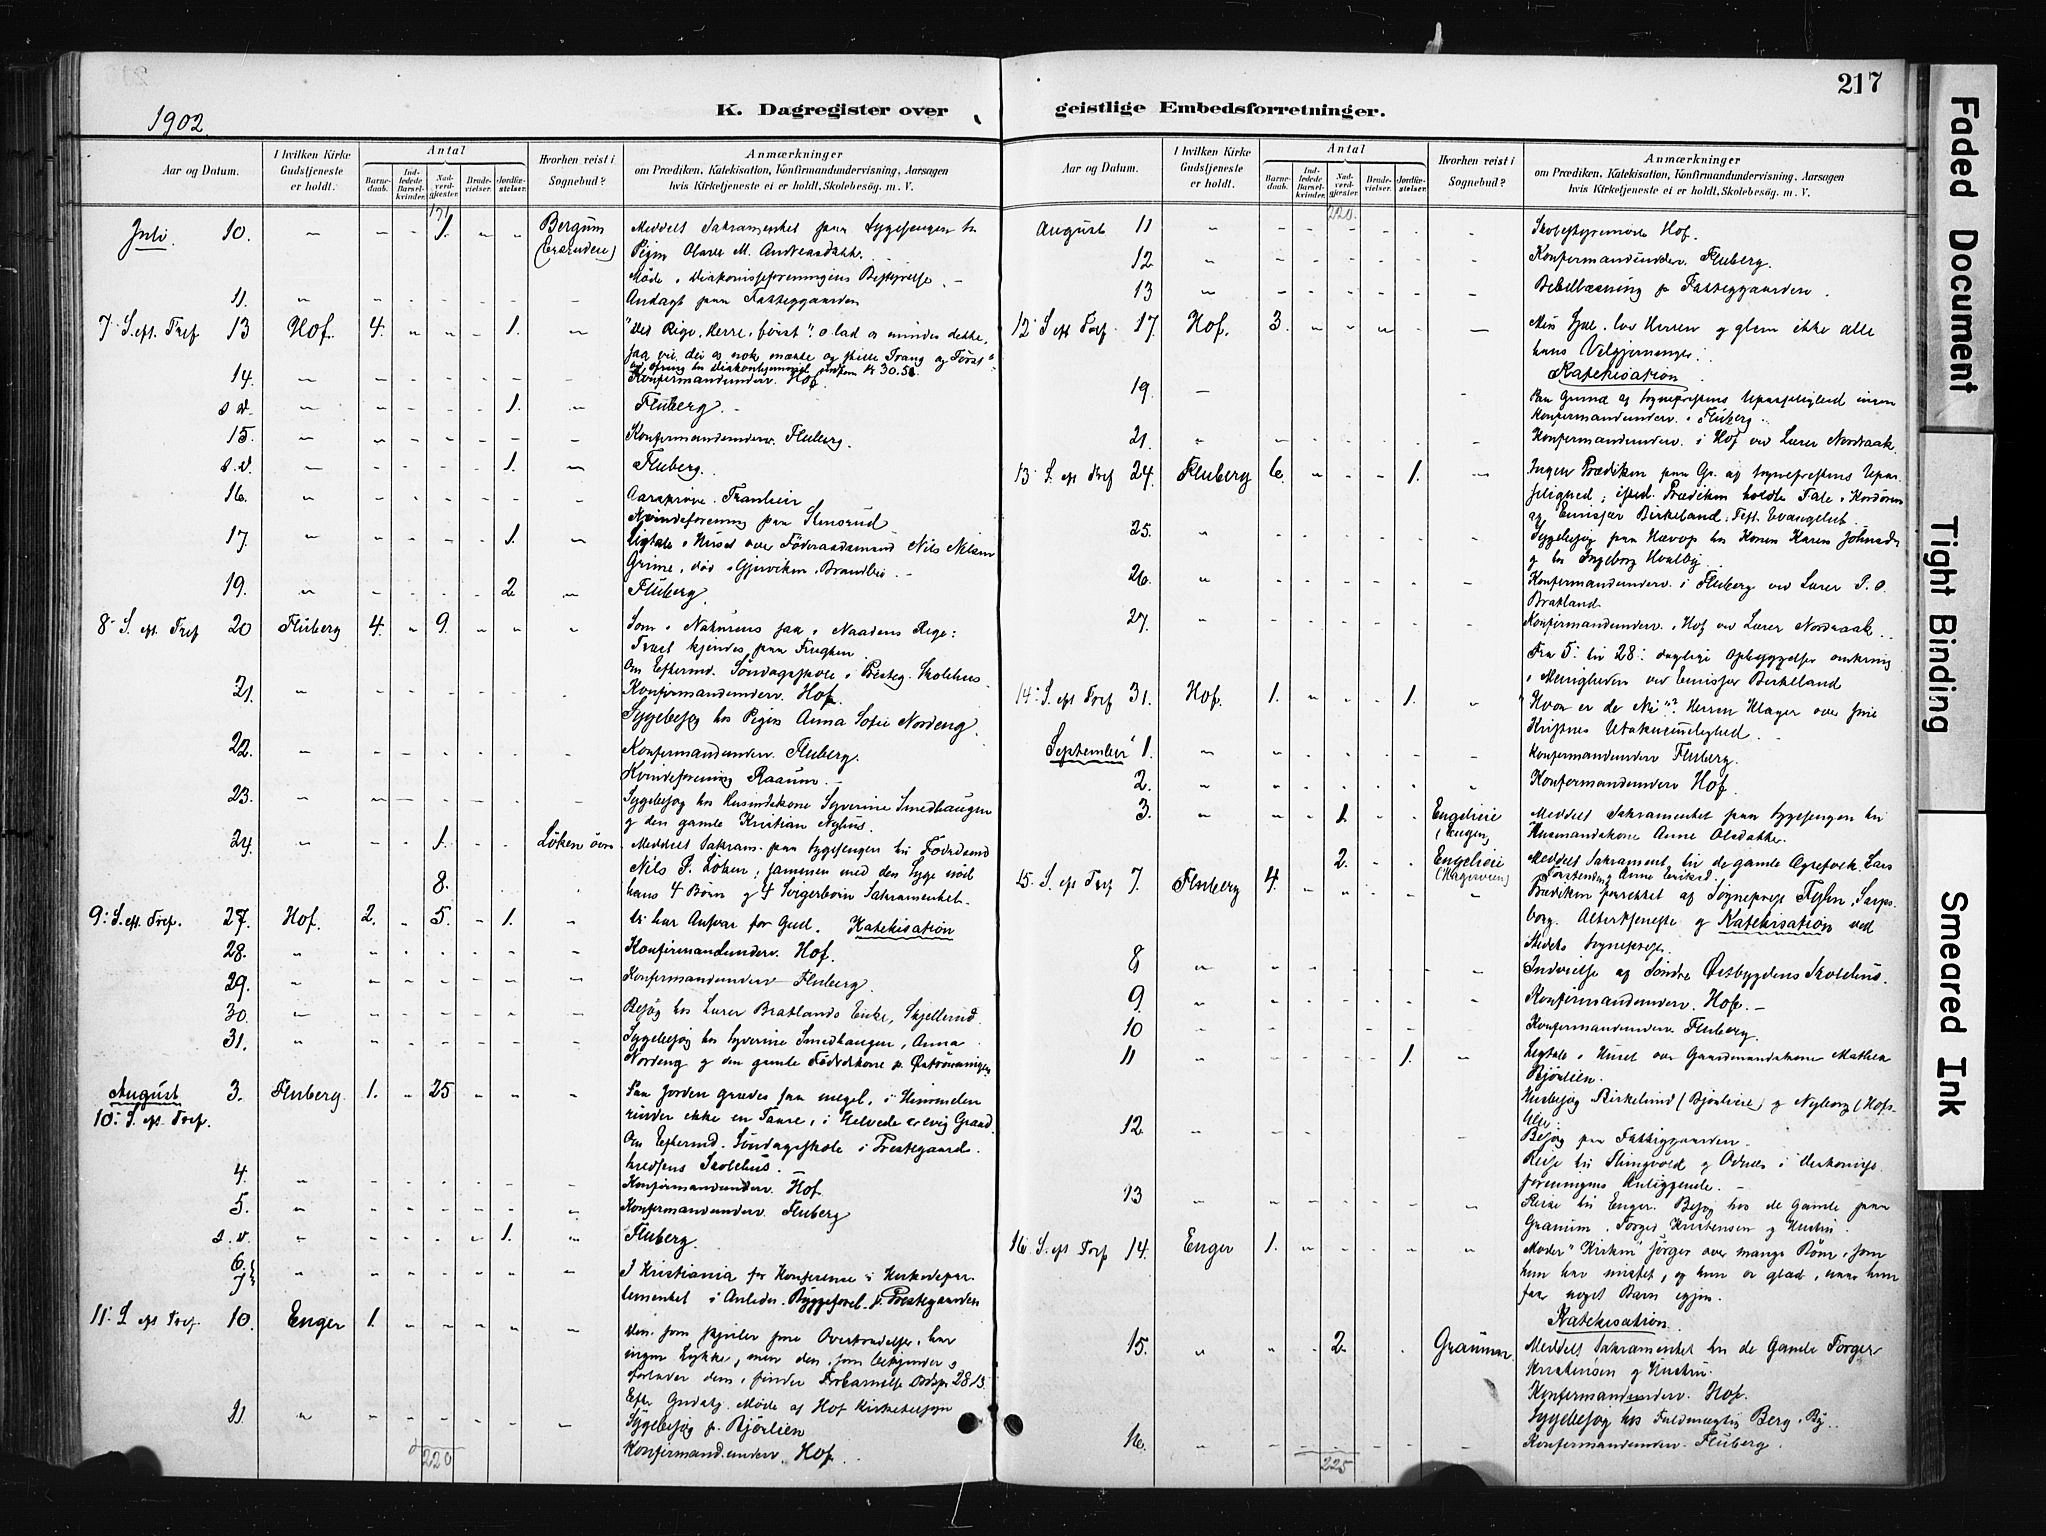 217
1902.
K. Dagregister over
geistlige Embedsforretninger.
Faded Document
Tight Binding
Smeared Ink
Aar og Datum.
I hvilken Kirke Gudstjeneste er holdt.
Antal
Barnedaab.
Indledede Barselkvinder.
Nadverdgjester.
Brudevielser.
Jordfæstelser.
Hvorhen reist i Sognebud?
Anmærkninger
om Prædiken, Katekisation, Konfirmandundervisning, Aarsagen
hvis Kirketjeneste ei er holdt, Skolebesøg. m. V.
171
Juli. 10. 1. Bergum Meddelt Sakramentet paa Sygesengen
Pigen M. Andreasdatt.
Møde i Diakonisseforeningens Bestyrelse.
11. Andagt paa Fattiggaarden
7: S. eft. Tref 13 Hof. 4. 1. "Dit Rige, Herre, først". O lad os mindes dette,
saa vil dei os nok mætte og stille Trang og Tørst"
14. Konfirmandunderv. Hof
s. d. 1. Fluberg.
15. Konfirmandunderv. Fluberg.
s. d. 1. Fluberg.
16.
Kvindeforening paa Stensrud
17. 1. Ligtale i Huset over Føderaadsmand Nils Nilsen
Grime, død i Gjøvikm.
19. 2 Fluberg.
8: S. eft. Tref 20 Fluberg 4. 9. Som i Naturens saa i Naadens Rige:
Træet kjendes paa Frugten.
Om Eftermd. Søndagsskole i Presteg. Skolehus.
21. Konfirmandunderv. Hof.
Sygebesøg hos Pigen Anna Sofie Nordeng.
22. Konfirmandunderv. Fluberg.
Kvindeforening Raaum.
23. Sygebesøg hos Syverine Smedhaugen
g den gamle Kristian Nyhus.
24. 1. Løken Meddelt Sakram. paa Sygesengen til
8. Nils P. Løken; sammen med den Syge nød
hans 4 Børn g 4 Svigerbørn Sakramentet.
9: S. eft. Tref. 27. Hof. 2. 5. 1. Vi har Ansvar for Gud. Katekisation
28. Konfirmandunderv. Hof.
29. Konfirmandunderv Fluberg.
30. Besøg hos Lærer Bratlands Enke, Skjellerud.
31. Sygebesøg hos Syverine Smedhaugen, Anna
Nordeng g den gamle
August 3. Fluberg 1. 25 Paa Jorden grædes saa meget, i Himmelen
10: S. eft. Tref. rinder ikke en Taare, i Helvede er evig Graad.
Om Eftermd. Søndagsskole i Prestegaard-
kredsens Skolehus.
4. Konfirmandunderv. Hof
5. Konfirmandunderv. Fluberg
s. d. 1. Fluberg.
6. I Kristiania for Konference i Kirkedepar-
7 tementet i Anledn. Byggeforet. p. Prestegaarden
11: S eft Tref. 10. Enger 1. Den, som skjuler sine Overtrædelser, har
ingen Lykke, men den, som bekjender g
forlader dem, finder Forbarmelse Ordspr 28.13.
Efter Gudstj. Møde af Hof Kirketilsyn
11. Sygebesøg p. Bjørlien
Konfirmand.underv. Hof.
220
220.
August 11 Skolestyremøte Hof.
12 Konfirmandunderv. Fluberg.
13 Bibellæsning p. Fattiggaarden.
12: S eft Tref. 17. Hof. 3. Min Sjæl, lov Herren g glem ikke alle
hans Velgjerninger.
Katekisation
19. Paa Grund af Sogneprestens Upasselighed ingen
Konfirmandunderv. i Fluberg.
21. Konfirmandunderv. i Hof ved Lærer Nordraak.
13 S. eft Tref 24. Fluberg 6. 1. Ingen Prædiken paa Gr. af Sogneprestens Upas-
selighed; isted. Prædiken holdte Tale i Kordøren
af Emissær Birkeland. Evangeliet.
25. Sygebesøg paa hos Konen Karen
g hos Ingeborg Hvalby.
26. Konfirmandunderv. i Fluberg ved Lærer P. O.
Bratland
27. Konfirmandunderv. i Hof ved Lærer Nordraak.
Fra 5: til 28: daglige Opbyggelser omkring
i Menigheden ved Emissær Birkeland
14: S. eft Tref 31. Hof. 1. 1. "Hvor er de Ni"? Herren klager over sine
Kristnes Utaknemelighed.
September 1. Konfirmandunderv Fluberg.
2. Konfirmandunderv Hof.
3. 1. Engelieie Meddelt Sakramentet paa Sygesengen til
(Haugen) Husmandskone Anne Olsdatter.
2. Engelieie Meddelt Sakrament til de gamle Lars
Anne
15. S. eft Tref 7. Fluberg 4. Prædiken forrettet af Sogneprest Sarps-
borg. Altertjeneste g Katekisation ved
Stedets Sogneprest.
8 Indvielse af Søndre Østbygdens Skolehus.
9. Konfirmandunderv. Hof.
10 Konfirmandunderv. Fluberg.
11 1. Ligtale i Huset over Gaardmandskone Mathea
Bjørlien.
Husbesøg (Bjørlieie) g Nyborg (Hofs-
eie).
12. Besøg paa Fattiggaarden.
Reise til g Odnæs i Diakonisse-
foreningens Anliggende.
13 Reise til Enger. Besøg hos de Gamle paa
Graaum, Torger Kristensen g Hustru.
16 S. eft Tref 14. Enger 1. Moder "Kirken" sørger over mange Børn, som
hun har mistet, og hun er glad, naar hun
faar noget Barn igjen.
Katekisation.
15. 2. Graaum Meddelt Sakramentet til de Gamle Torger
Kristensen g Hustru.
Konfirmandunderv. Hof.
Sygebesøg hos Fuldmægtig Berg, By.
16. Konfirmandunderv. Fluberg.
225